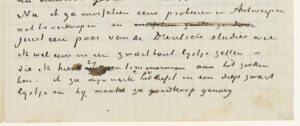 Nu ik ga misschien eens probeeren in Antwerpen
wat te verkoopen en
juist een paar van de Drentsche studies wou
ik wel eens in een zwart hout lijstje zetten –
die ik hier bij een timmerman aan het zoeken
ben. ik zie mijn werk het liefst in een diep zwart
lijstje en hij maakt ze goedkoop genoeg